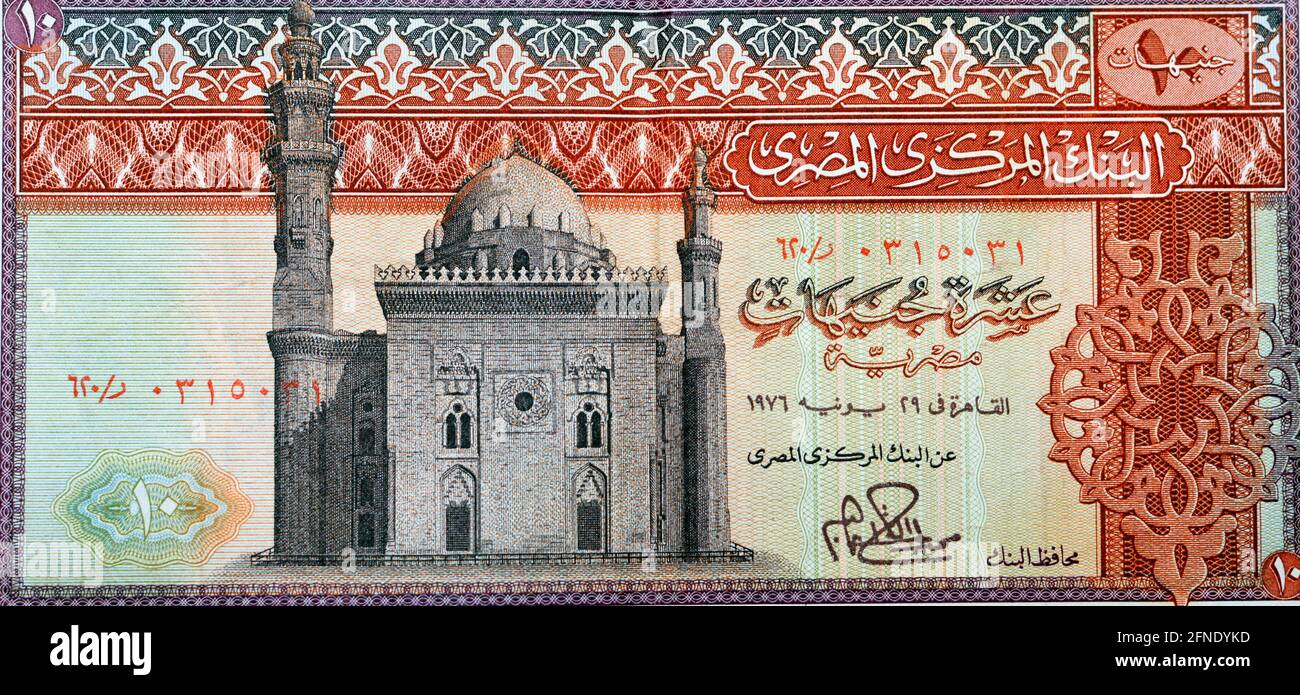 ١٠
١٠ جنيهات
البنك المركزى المصرى
د/٦٢٠ ٠٣١٥٠٣١
عشرة جنيهات
مصرية
القاهرة فى ٢٩ يونيه ١٩٧٦
عن البنك المركزى المصرى
محافظ البنك
د/٦٢٠ ٠٣١٥٠٣١
١٠
١٠
alamy
Image ID: 2FNDYKD
www.alamy.com